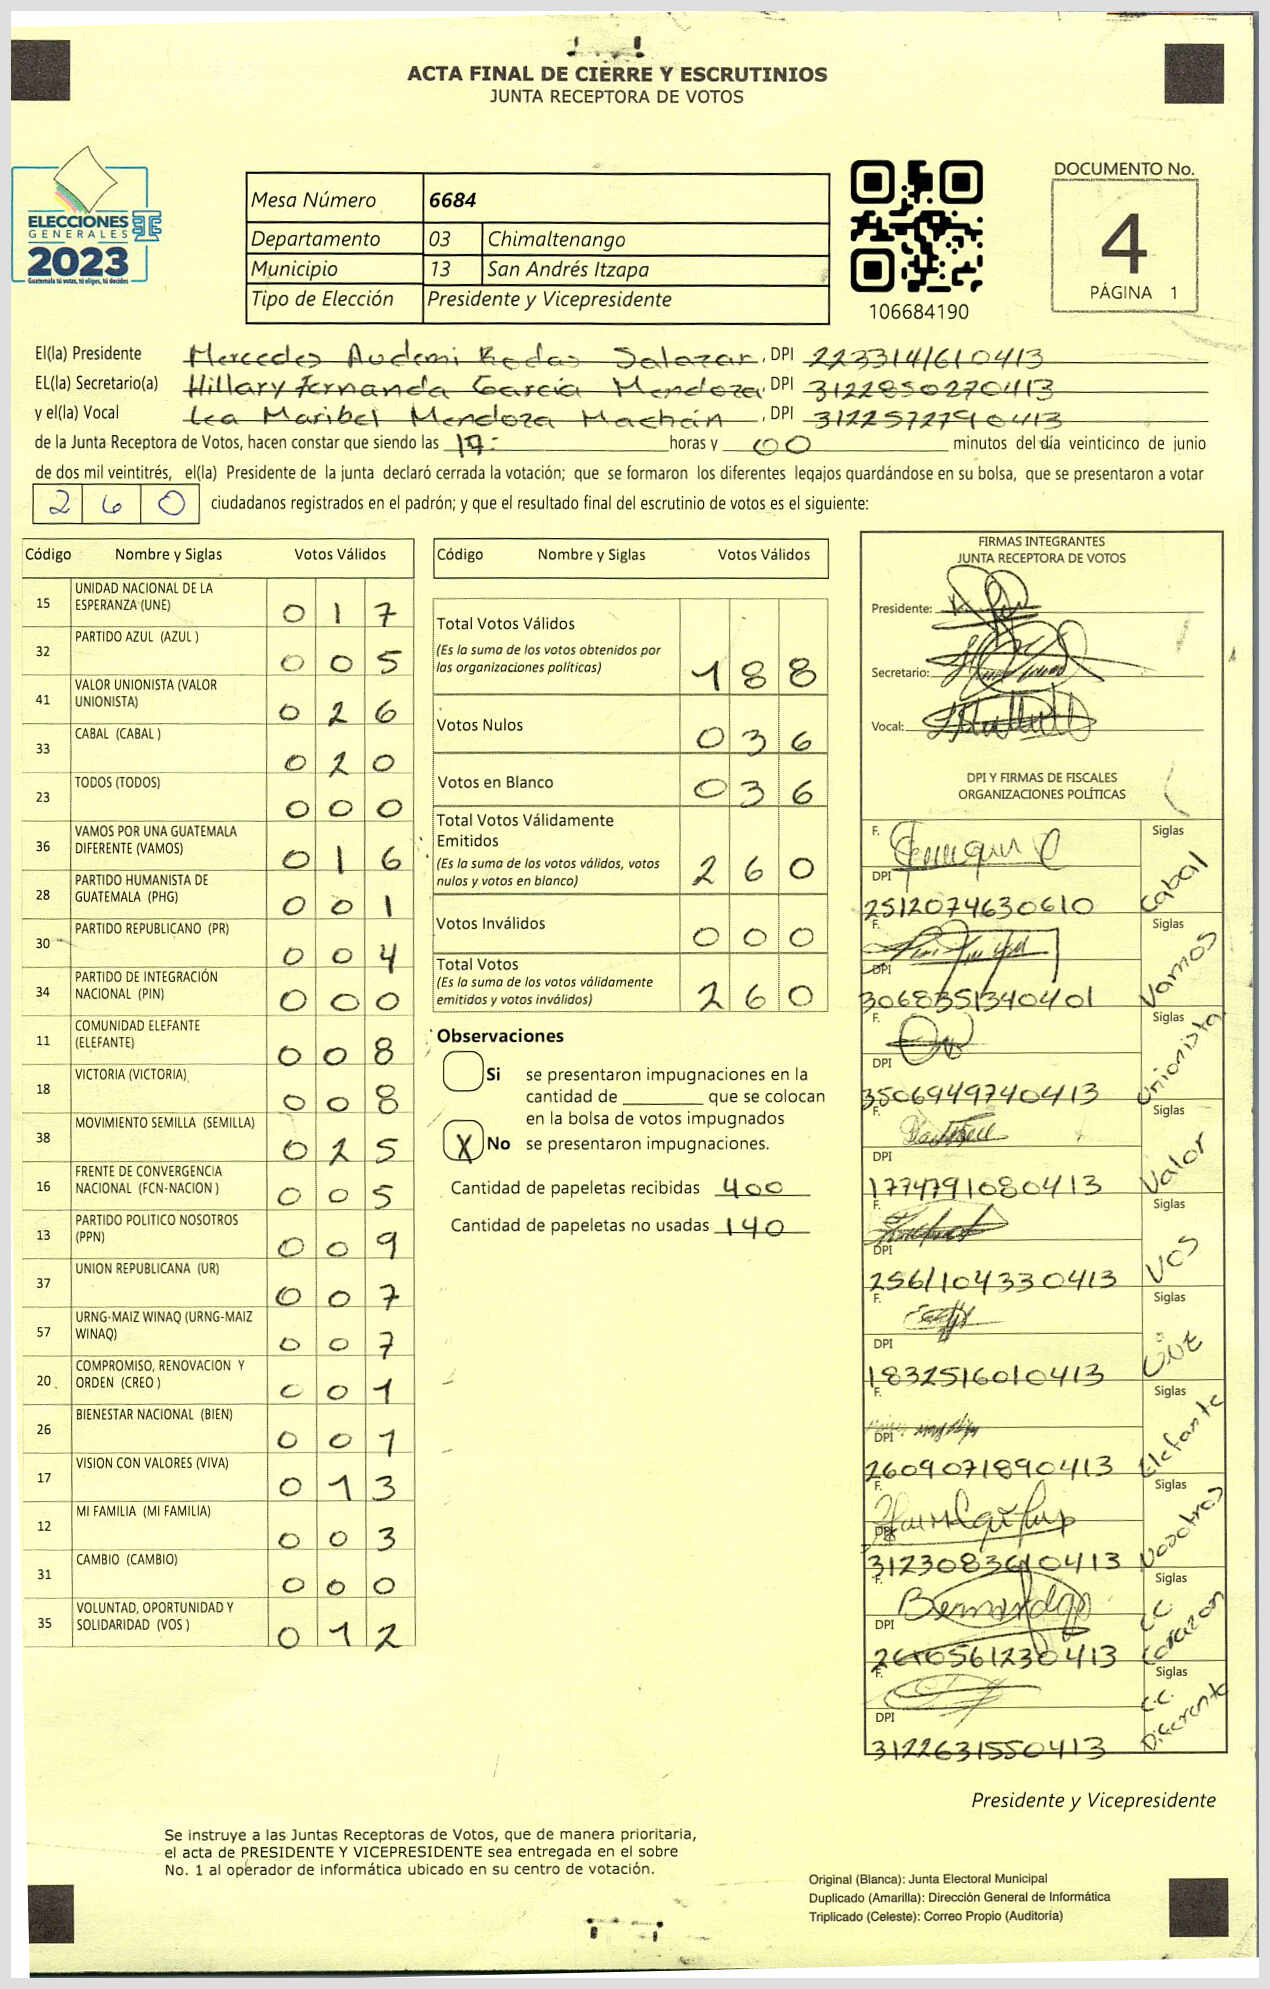 ACTA FINAL DE CIERRE Y ESCRUTINIOS
JUNTA RECEPTORA DE VOTOS
ELECCIONES
GENERALES
2023
Guatemala tú votas, tú eliges, tú decides
Mesa Número 6684
Departamento 03 Chimaltenango
Municipio 13 San Andrés Itzapa
Tipo de Elección Presidente y Vicepresidente
106684190
DOCUMENTO No.
4
PÁGINA 1
El(la) Presidente Mercedes Audemi Rodas Salazar, DPI 2233141610413
EL(la) Secretario(a) Hillary Fernanda García Mendoza, DPI 3122850270413
y el(la) Vocal Lea Maribel Mendoza Machán, DPI 3122572790413
de la Junta Receptora de Votos, hacen constar que siendo las 19: horas y 00 minutos del día veinticinco de junio
de dos mil veintitrés, el(la) Presidente de la junta declaró cerrada la votación; que se formaron los diferentes legajos guardándose en su bolsa, que se presentaron a votar
260 ciudadanos registrados en el padrón; y que el resultado final del escrutinio de votos es el siguiente:
Código Nombre y Siglas Votos Válidos
15 UNIDAD NACIONAL DE LA
ESPERANZA (UNE) 017
32 PARTIDO AZUL (AZUL ) 005
41 VALOR UNIONISTA (VALOR
UNIONISTA) 026
33 CABAL (CABAL ) 020
23 TODOS (TODOS) 000
36 VAMOS POR UNA GUATEMALA
DIFERENTE (VAMOS) 016
28 PARTIDO HUMANISTA DE
GUATEMALA (PHG) 001
30 PARTIDO REPUBLICANO (PR) 004
34 PARTIDO DE INTEGRACIÓN
NACIONAL (PIN) 000
11 COMUNIDAD ELEFANTE
(ELEFANTE) 008
18 VICTORIA (VICTORIA) 008
38 MOVIMIENTO SEMILLA (SEMILLA) 025
16 FRENTE DE CONVERGENCIA
NACIONAL (FCN-NACION ) 005
13 PARTIDO POLITICO NOSOTROS
(PPN) 009
37 UNION REPUBLICANA (UR) 007
57 URNG-MAIZ WINAQ (URNG-MAIZ
WINAQ) 007
20 COMPROMISO, RENOVACION Y
ORDEN (CREO ) 001
26 BIENESTAR NACIONAL (BIEN) 001
17 VISION CON VALORES (VIVA) 013
12 MI FAMILIA (MI FAMILIA) 003
31 CAMBIO (CAMBIO) 000
35 VOLUNTAD, OPORTUNIDAD Y
SOLIDARIDAD (VOS ) 012
Código Nombre y Siglas Votos Válidos
Total Votos Válidos
(Es la suma de los votos obtenidos por
las organizaciones políticas) 188
Votos Nulos 036
Votos en Blanco 036
Total Votos Válidamente
Emitidos
(Es la suma de los votos válidos, votos
nulos y votos en blanco) 260
Votos Inválidos 000
Total Votos
(Es la suma de los votos válidamente
emitidos y votos inválidos) 260
Observaciones
Si se presentaron impugnaciones en la
cantidad de ________ que se colocan
en la bolsa de votos impugnados
X No se presentaron impugnaciones.
Cantidad de papeletas recibidas 400
Cantidad de papeletas no usadas 140
FIRMAS INTEGRANTES
JUNTA RECEPTORA DE VOTOS
Presidente:
Secretario:
Vocal:
DPI Y FIRMAS DE FISCALES
ORGANIZACIONES POLÍTICAS
F. Siglas
DPI 2512074630610 Cabal
F. Siglas
DPI 3068351340401 Vamos
F. Siglas
DPI 3506949740413 Unionista
F. Siglas
DPI 1774791080413 Valor
F. Siglas
DPI 2561104330413 VOS
F. Siglas
DPI 1832516010413 UNE
F. Siglas
DPI 2609071890413 Elefante
F. Siglas
DPI 3123083610413 Nosotros
F. Siglas
DPI 2610561230413 C.C. Corazon
F. Siglas
DPI 3122631550413 C.C. Diferente
Presidente y Vicepresidente
Se instruye a las Juntas Receptoras de Votos, que de manera prioritaria,
el acta de PRESIDENTE Y VICEPRESIDENTE sea entregada en el sobre
No. 1 al operador de informática ubicado en su centro de votación.
Original (Blanca): Junta Electoral Municipal
Duplicado (Amarilla): Dirección General de Informática
Triplicado (Celeste): Correo Propio (Auditoría)